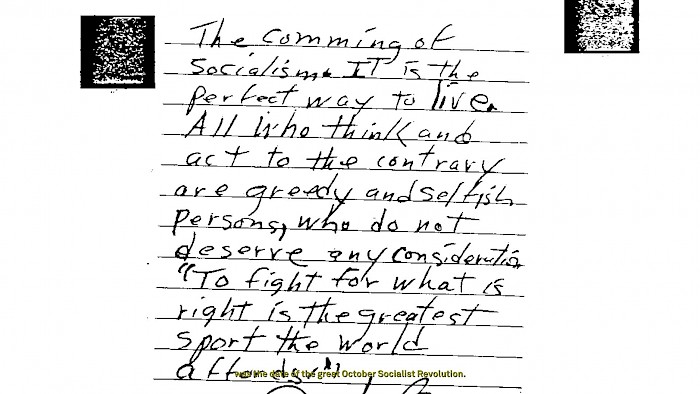 The comming of
Socialism. IT is the
perfect way to live.
All who think and
act to the contrary
are greedy and selfish
persons, who do not
deserve any consideration
"To fight for what is
right is the greatest
sport the world
affords."
was the date of the great October Socialist Revolution.